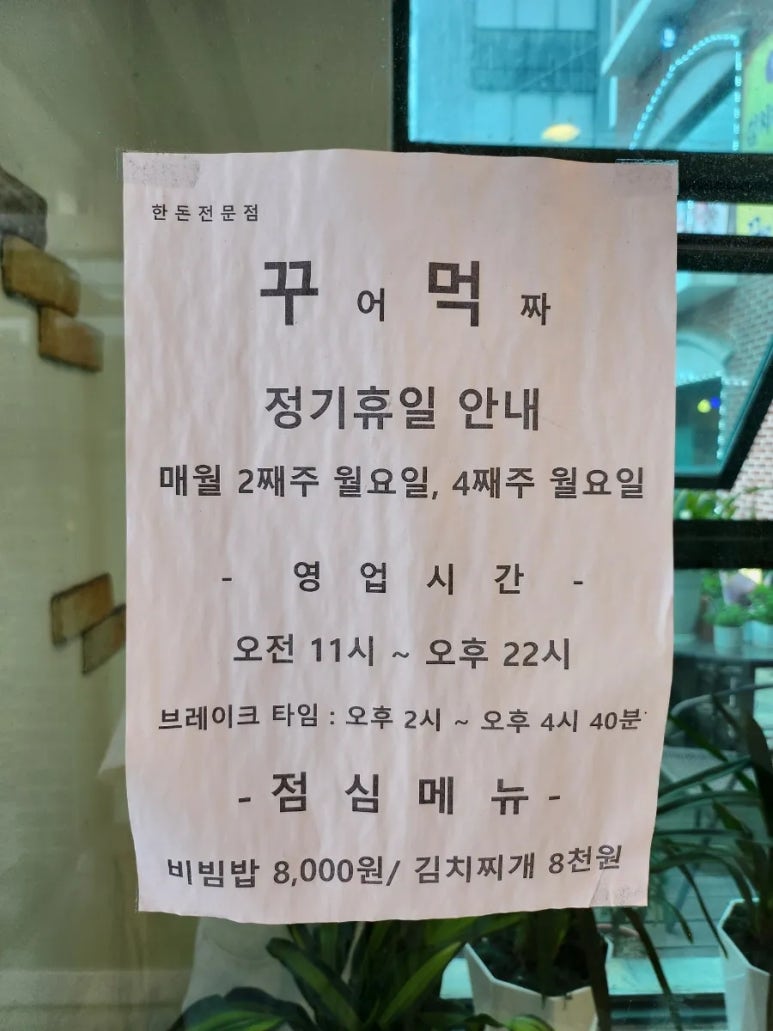 한돈전문점
꾸어먹짜
정기휴일 안내
매월 2째주 월요일, 4째주 월요일
- 영 업 시 간 -
오전 11시 ~ 오후 22시
브레이크 타임 : 오후 2시 ~ 오후 4시 40분
- 점 심 메 뉴 -
비빔밥 8,000원/ 김치찌개 8천원